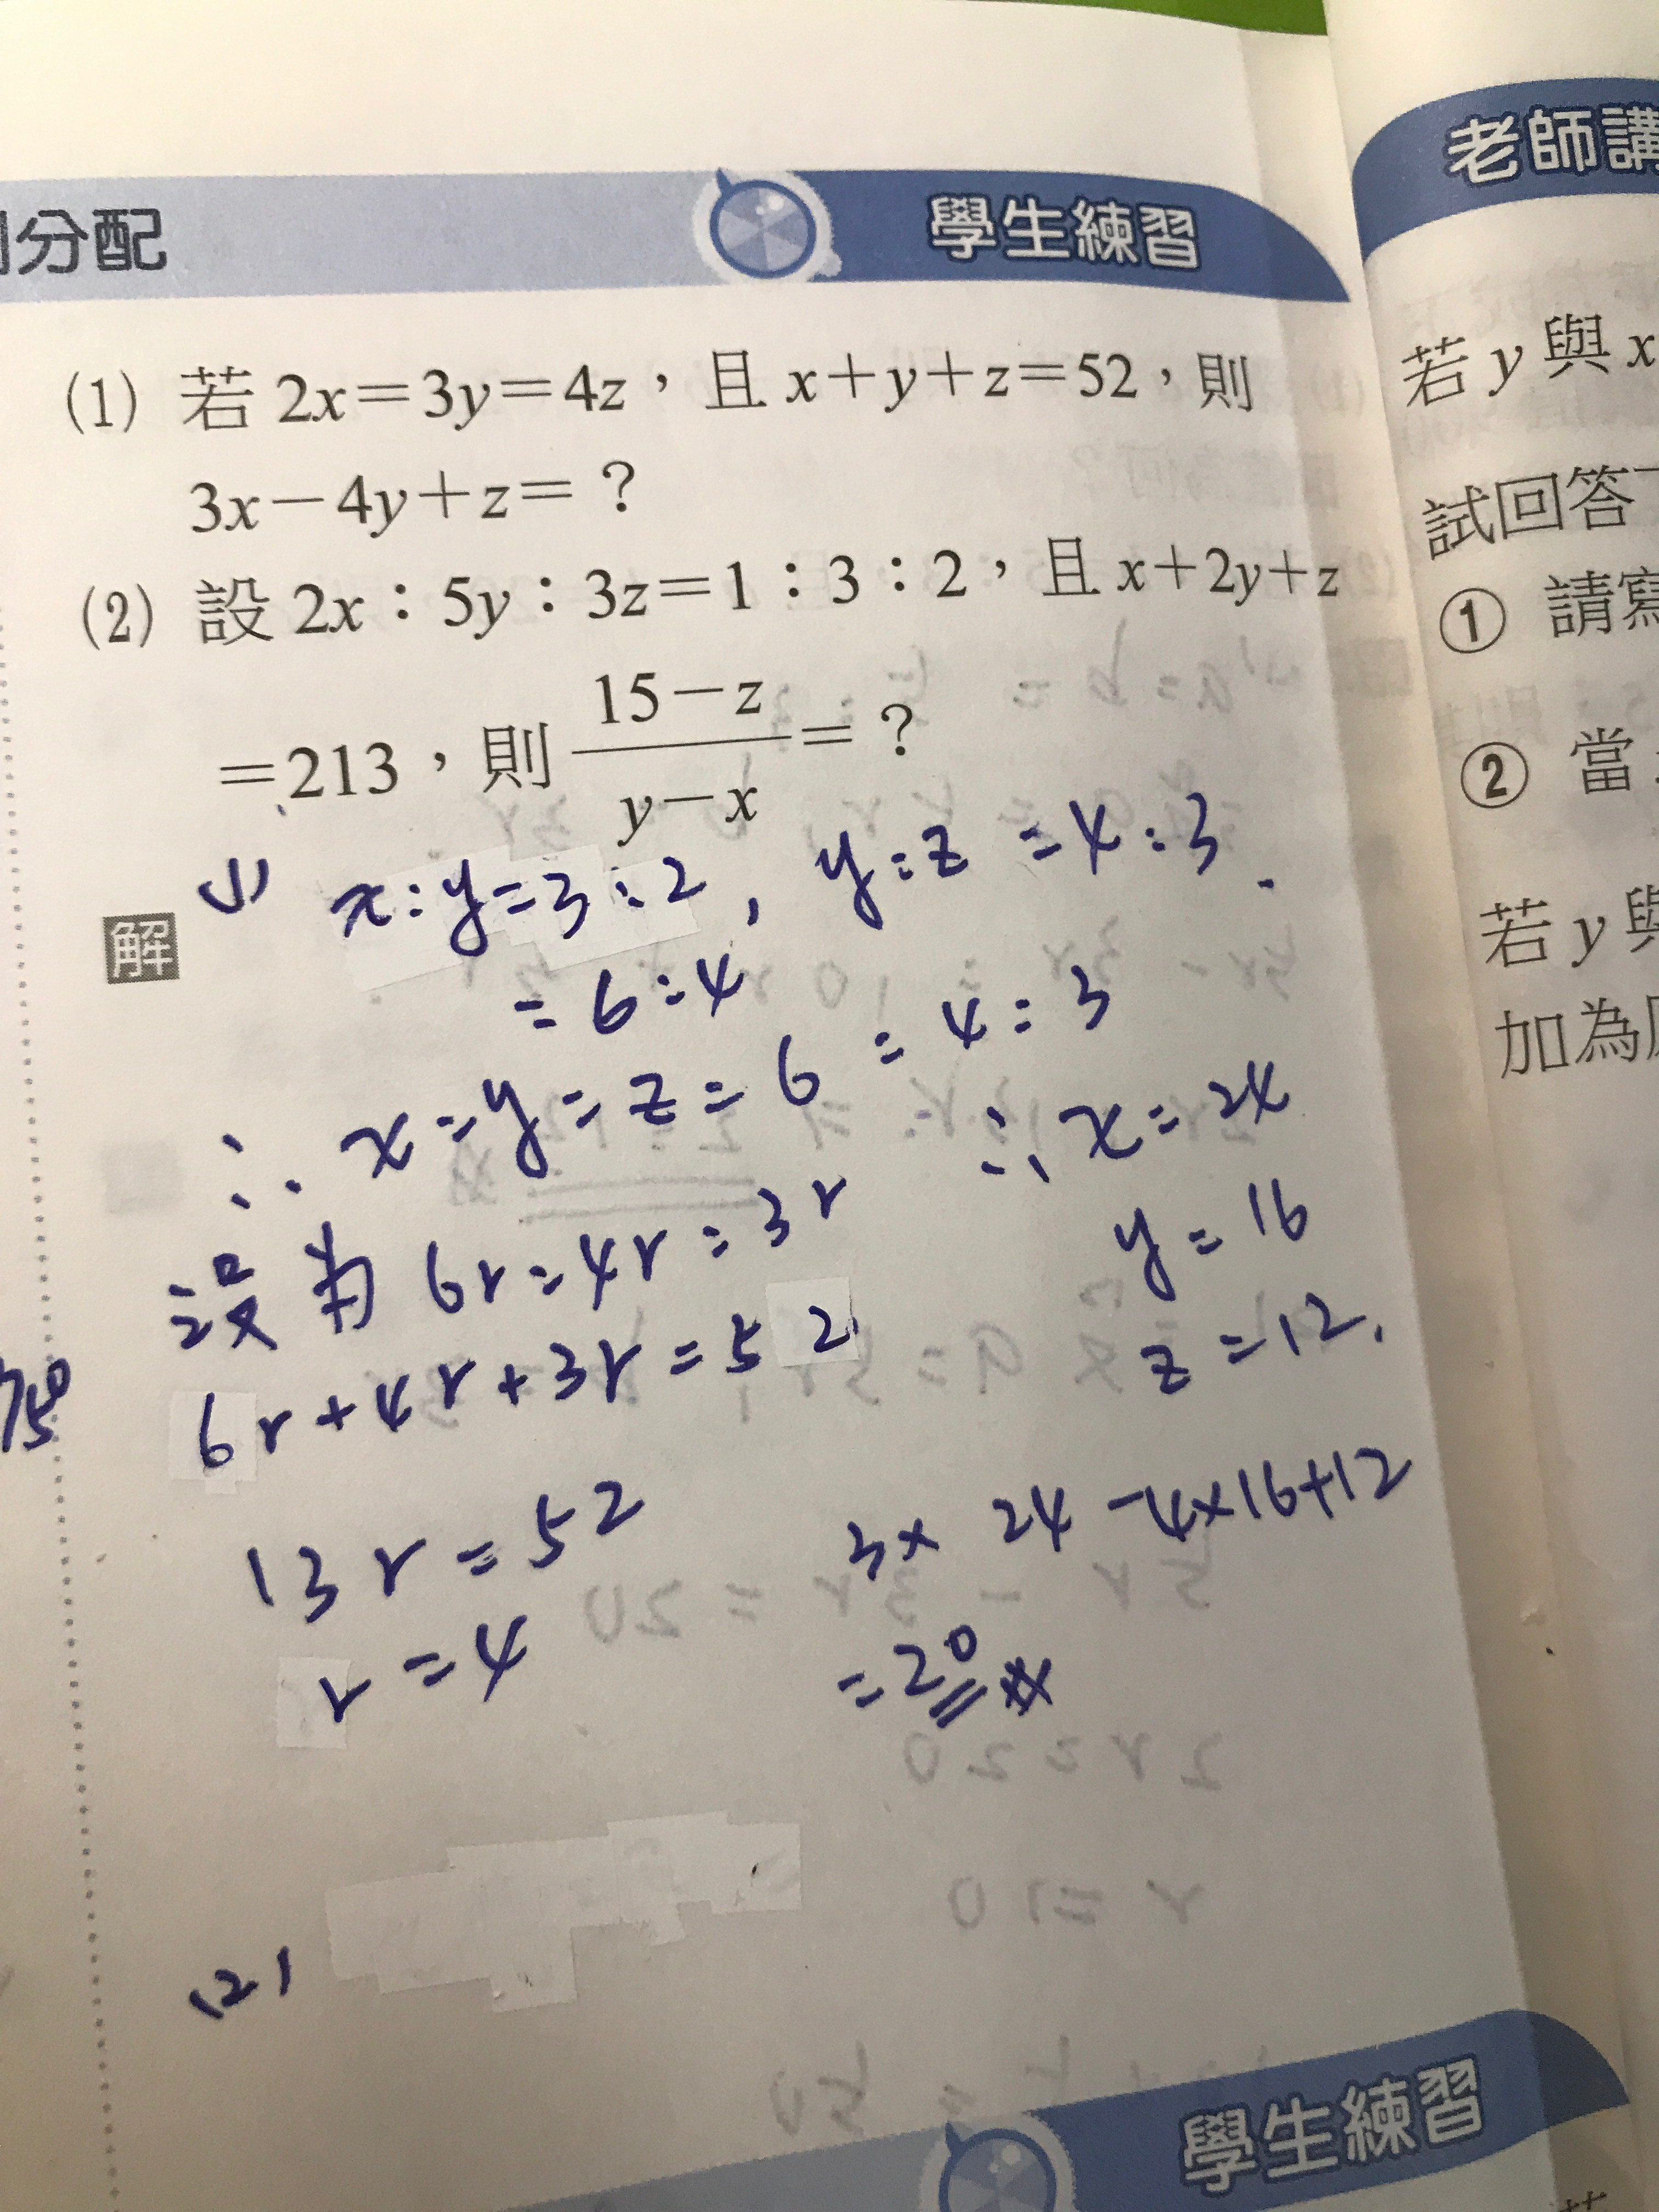 分配
學生練習
老師講
(1) 若 2x=3y=4z,且 x+y+z=52,則
3x-4y+z=?
(2) 設 2x:5y:3z=1:3:2,且 x+2y+z
=213,則 15-z/y-x=?
若 y 與 x
試回答
① 請寫
② 當
若 y 與
加為
解
(1) x:y=3:2, y:z=4:3.
=6:4
∴ x:y:z=6:4:3
設為 6r:4r:3r
6r+4r+3r=52
13r=52
r=4
∴ x=24
y=16
z=12.
3×24-4×16+12
=20
(2)
學生練習